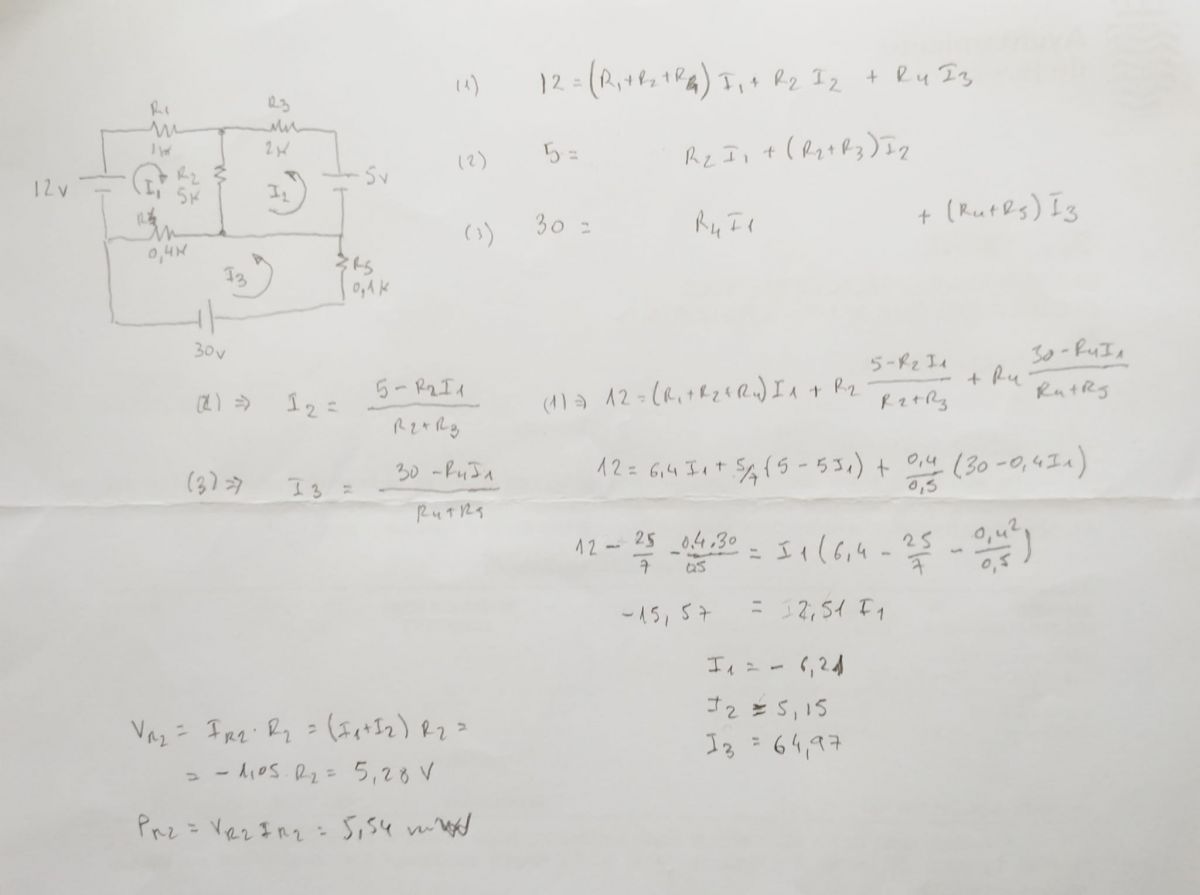 R1
R3
1K
2K
12v
I1
R2
5K
I2
5v
0,4K
I3
R5
0,1K
30v
(1) 12 = (R1+R2+R4) I1 + R2 I2 + R4 I3
(2) 5 = R2 I1 + (R2+R3) I2
(3) 30 = R4 I1 + (R4+R5) I3
(2) ⇒ I2 = (5 - R2 I1)/(R2+R3)
(3) ⇒ I3 = (30 - R4 I1)/(R4+R5)
(1) ⇒ 12 = (R1+R2+R4) I1 + R2 (5 - R2 I1)/(R2+R3) + R4 (30 - R4 I1)/(R4+R5)
12 = 6,4 I1 + 5/7 (5 - 5 I1) + 0,4/0,5 (30 - 0,4 I1)
12 - 25/7 - 0,4.30/05 = I1 (6,4 - 25/7 - 0,4²/0,5)
-15,57 = 2,51 I1
I1 = - 6,21
I2 = 5,15
I3 = 64,97
VR2 = IR2 · R2 = (I1+I2) R2 =
= - 1,05 . R2 = 5,28 V
PR2 = VR2 IR2 = 5,54